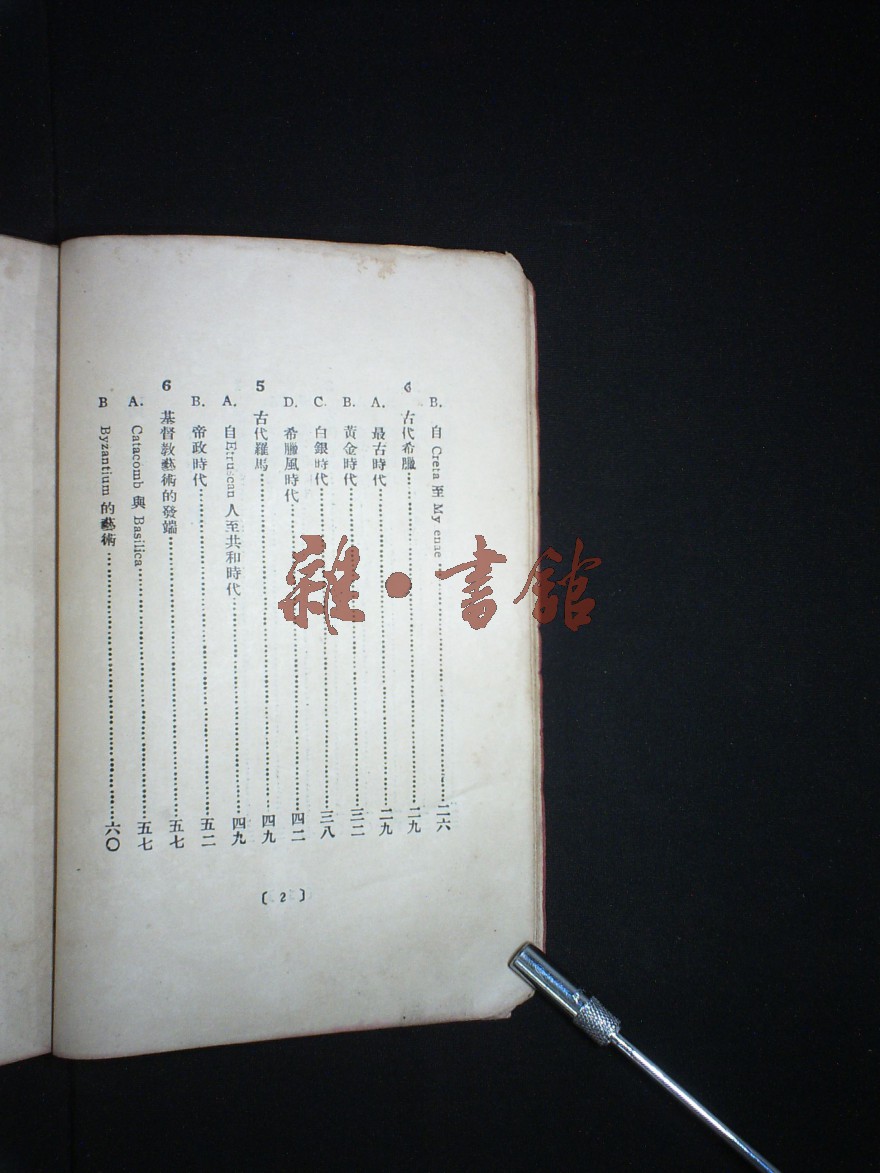 B. 自 Creta 至 My enae……二六
4 古代希臘……二九
A. 最古時代……二九
B. 黃金時代……三二
C. 白銀時代……三八
D. 希臘風時代……四二
5 古代羅馬……四九
A. 自Etruscan 人至共和時代……四九
B. 帝政時代……五二
6 基督教藝術的發端……五七
A. Catacomb 與 Basilica……五七
B Byzantium 的藝術……六〇
〔 2 〕
雜·書館